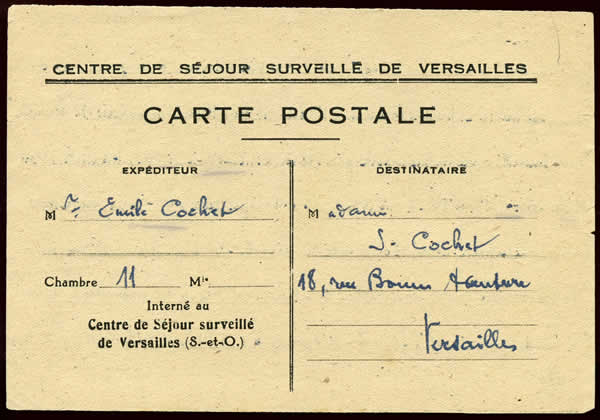 CENTRE DE SÉJOUR SURVEILLÉ DE VERSAILLES
CARTE POSTALE
EXPÉDITEUR
Mr Emile Cochet
Chambre 11 Mle
Interné au
Centre de Séjour surveillé
de Versailles (S.-et-O.)
DESTINATAIRE
Madame
J. Cochet
18, rue Bonne
Versailles